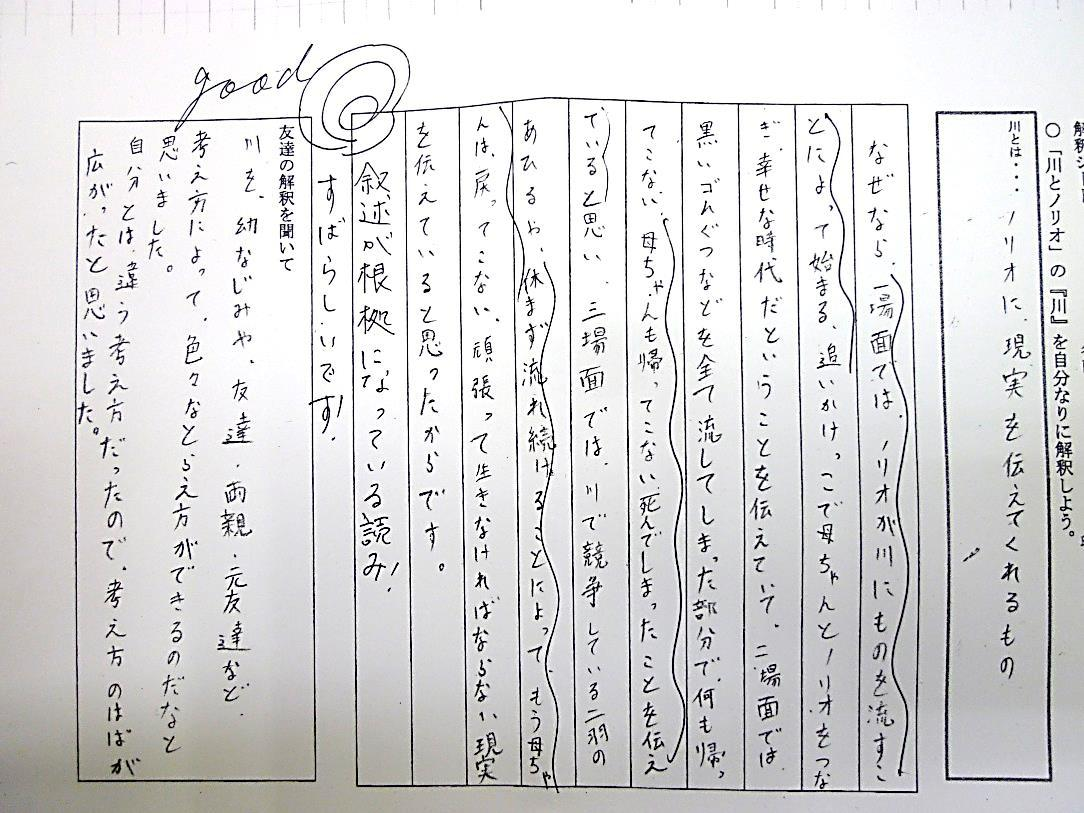 解釈シート
○「川とノリオ」の『川』を自分なりに解釈しよう。
川とは・・・ノリオに、現実を伝えてくれるもの
なぜなら、一場面では、ノリオが川にものを流すこ
とによって始まる、追いかけっこで母ちゃんとノリオをつな
ぎ、幸せな時代だということを伝えていて、二場面では
黒いゴムぐつなどを全て流してしまった部分で、何も帰っ
てこない、母ちゃんも帰ってこない、死んでしまったことを伝え
ていると思い、三場面では、川で競争している二羽の
あひるら、休まず流れ続けることによって、もう母ちゃ
んは、戻ってこない、頑張って生きなければならない現実
を伝えていると思ったからです。
叙述が根拠になっている読み!
すばらしいです!
good
友達の解釈を聞いて
川を、幼なじみや、友達・両親・元友達など、
考え方によって、色々なとらえ方ができるのだなと
思いました。
自分とは、違う考え方だったので、考え方のはばが
広がったと思いました。